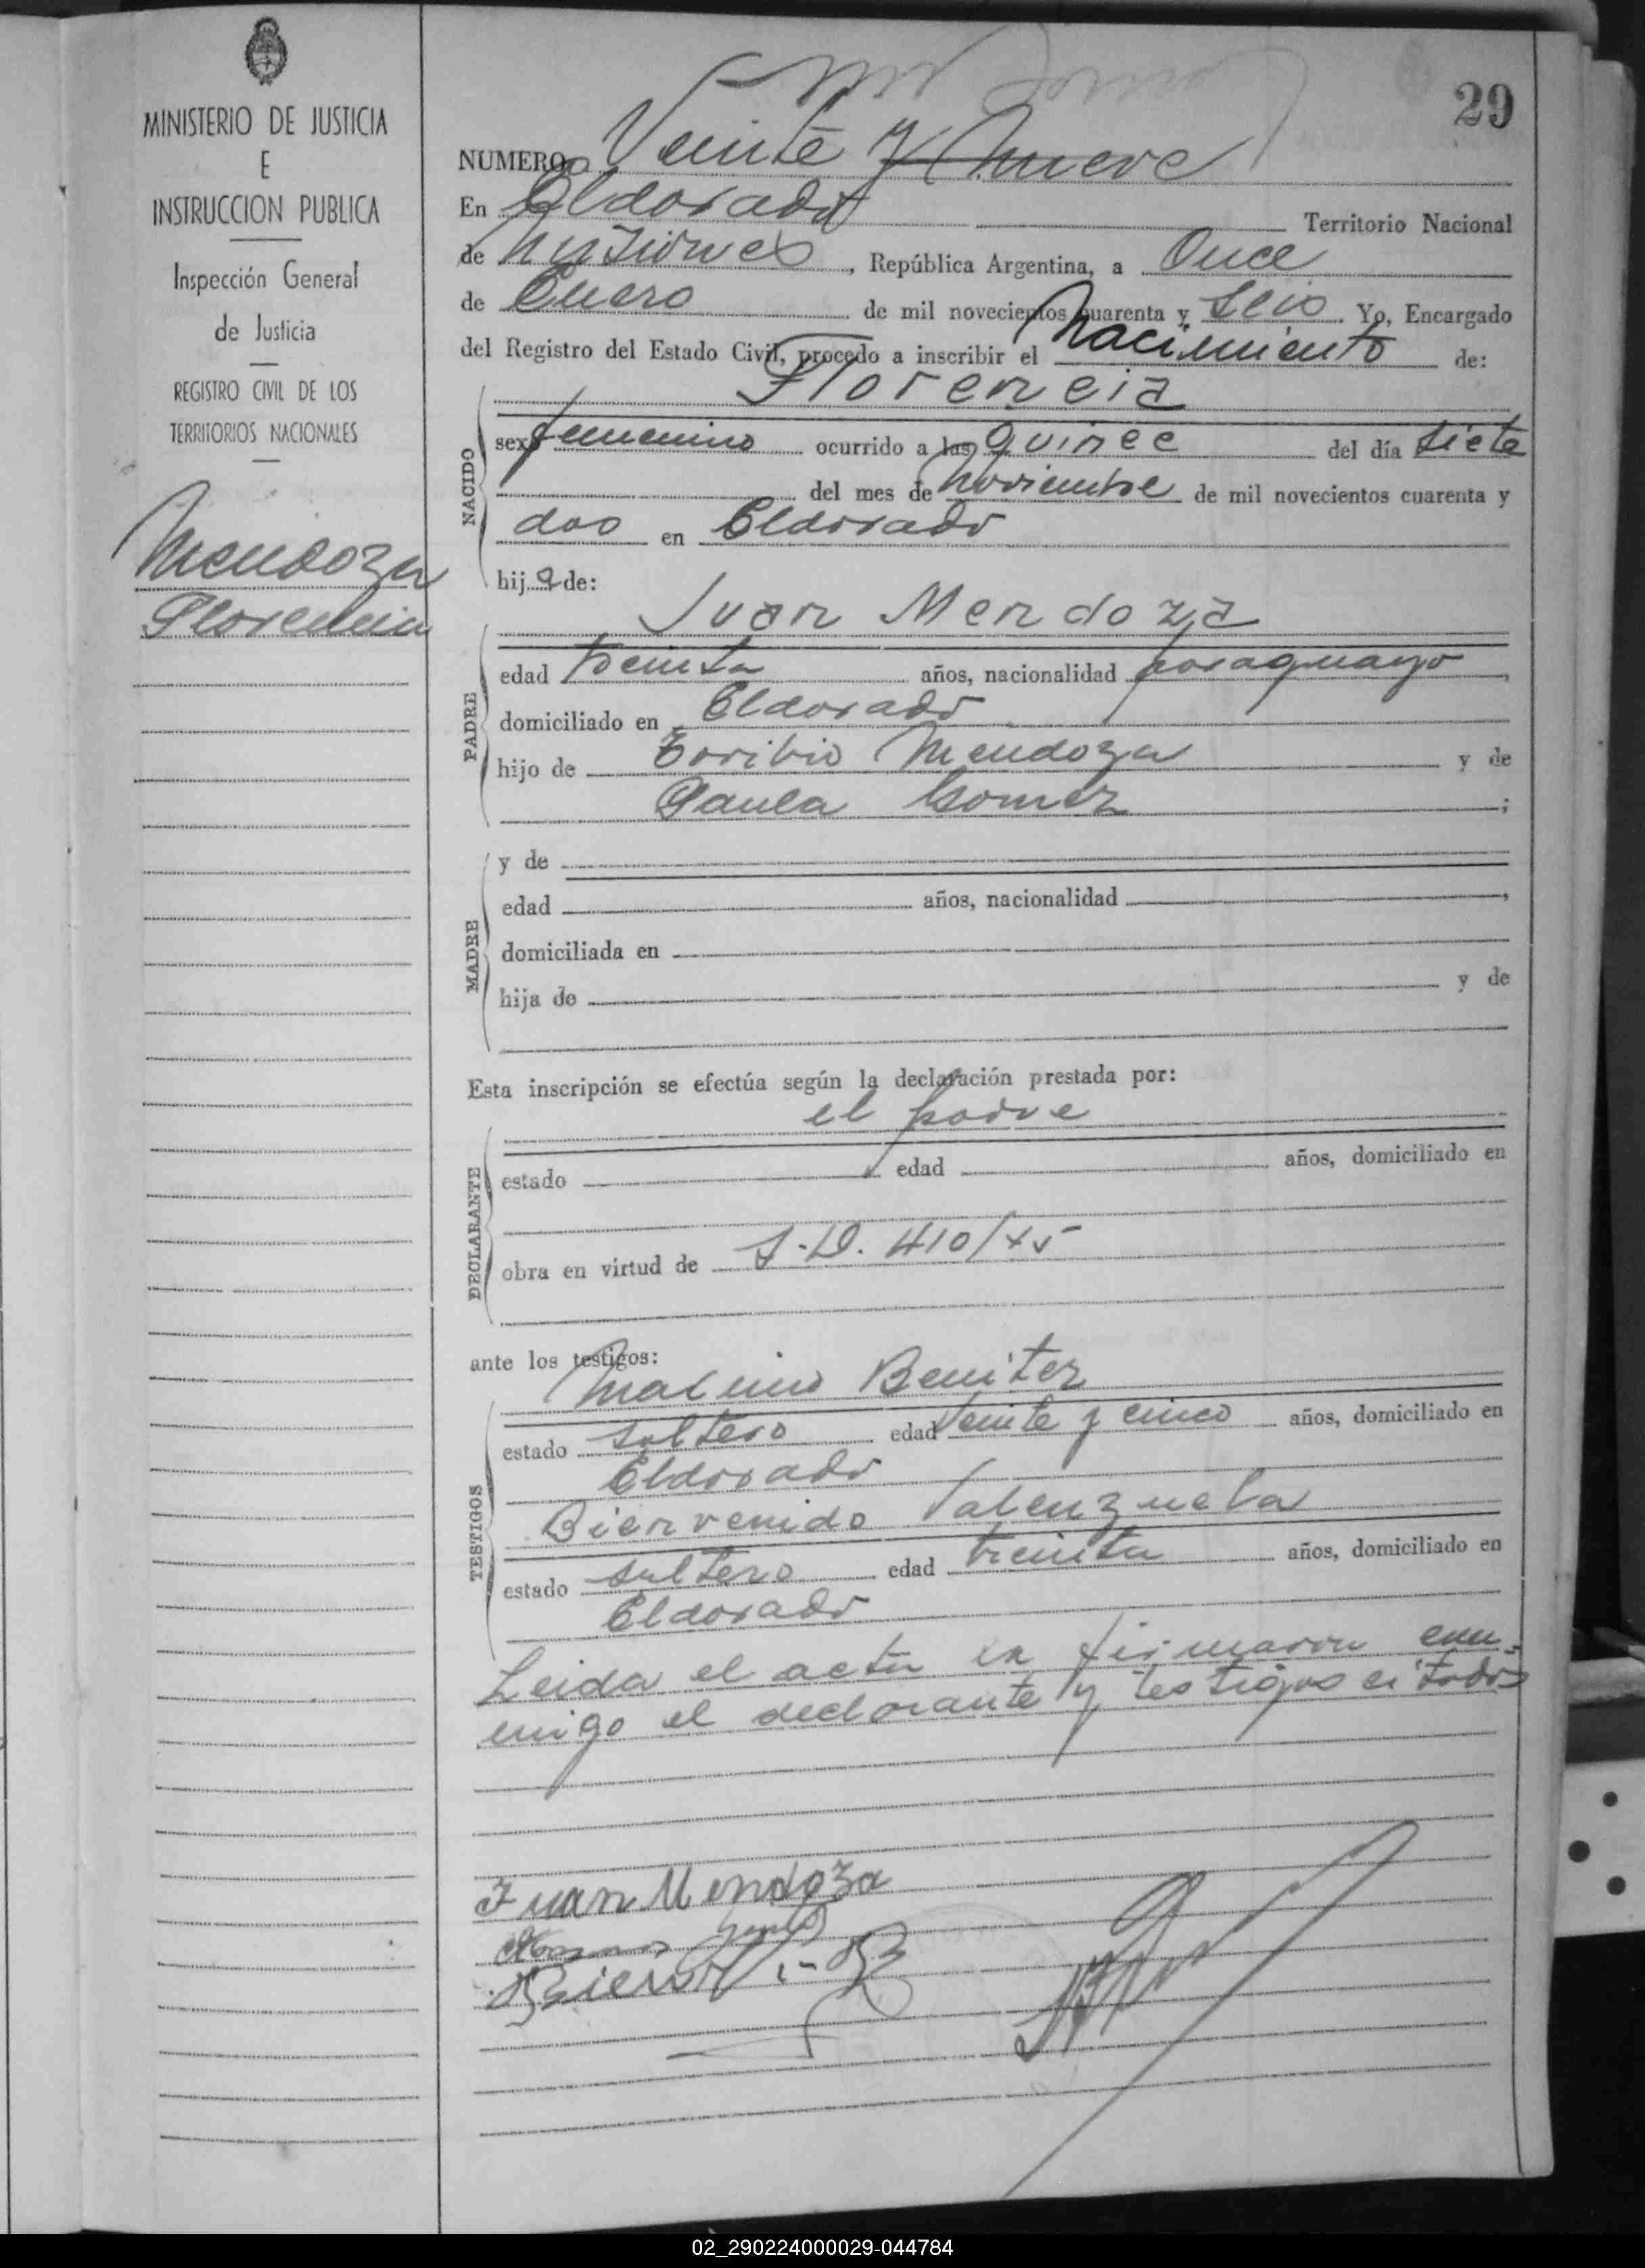 MINISTERIO DE JUSTICIA
E
INSTRUCCION PUBLICA
Inspección General
de Justicia
REGISTRO CIVIL DE LOS
TERRITORIOS NACIONALES
Mendoza
Florencia
29
NUMERO Veinte y Nueve
En Eldorado Territorio Nacional
de Misiones, República Argentina, a Once
de Enero de mil novecientos cuarenta y seis. Yo, Encargado
del Registro del Estado Civil, procedo a inscribir el Nacimiento de:
Florencia
NACIDO
sexo femenino ocurrido a las quince del día siete
del mes de Noviembre de mil novecientos cuarenta y
dos en Eldorado
hij a de:
PADRE
Juan Mendoza
edad treinta años, nacionalidad paraguayo,
domiciliado en Eldorado
hijo de Toribio Mendoza y de
Paula Gomez;
MADRE
y de
edad años, nacionalidad,
domiciliada en
hija de y de
Esta inscripción se efectúa según la declaración prestada por:
DECLARANTE
el padre
estado edad años, domiciliado en
obra en virtud de S.D. 410/45
ante los testigos:
TESTIGOS
Benitez
estado soltero edad Veinte y cinco años, domiciliado en
Eldorado
Bienvenido Valenzuela
estado soltero edad treinta años, domiciliado en
Eldorado
Leida el acta la firmaron con-
migo el declarante y testigos citados
Juan Mendoza
02_290224000029-044784